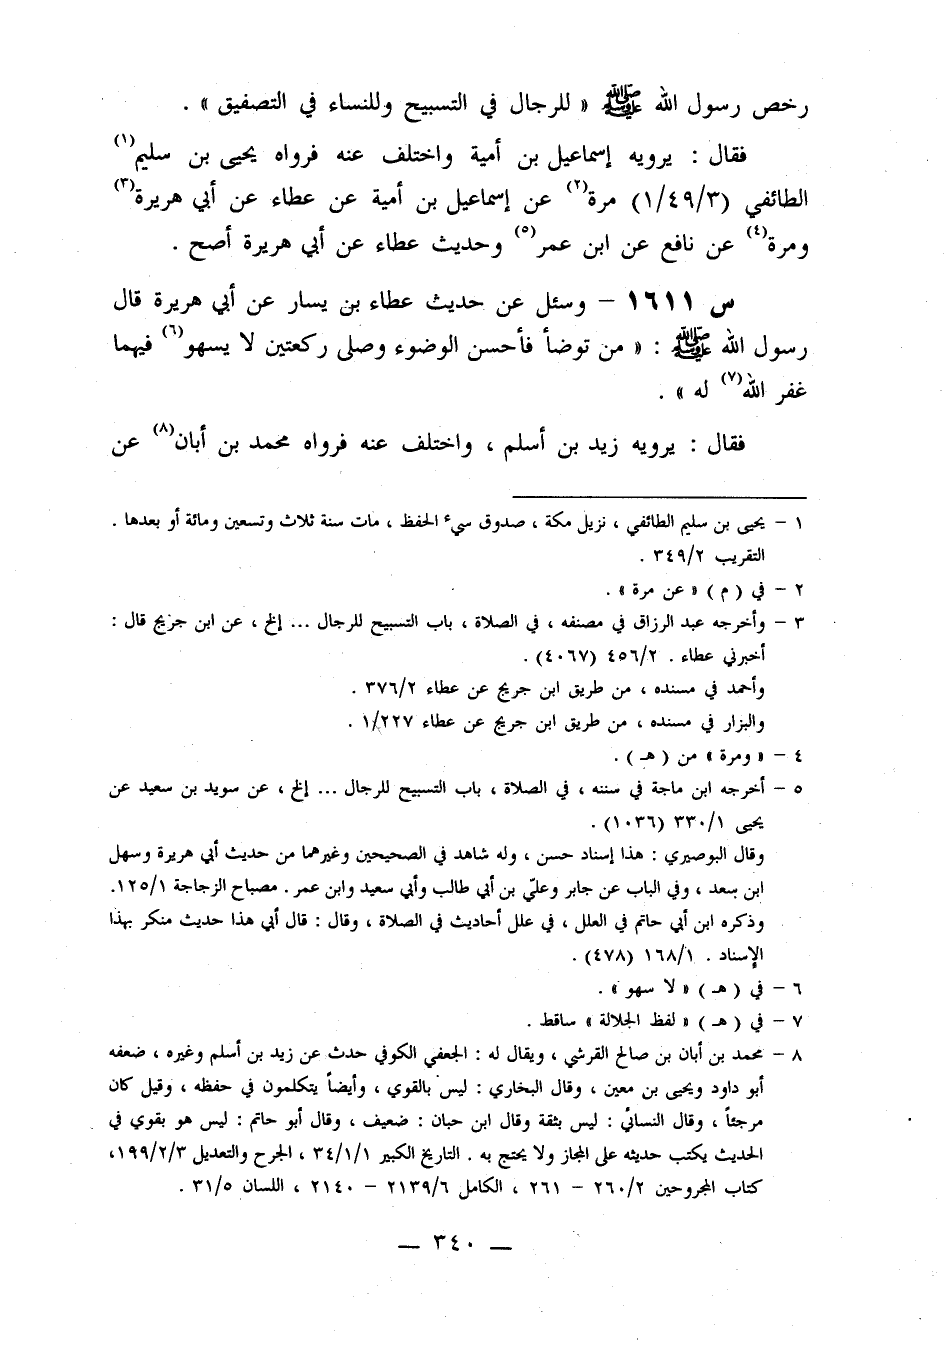 رخص رسول الله ﷺ « للرجال في التسبيح وللنساء في التصفيق » .
فقال : يرويه إسماعيل بن أمية واختلف عنه فرواه يحيى بن سليم(١)
الطائفي (١/٤٩/٣) مرة(٢) عن إسماعيل بن أمية عن عطاء عن أبي هريرة(٣)
ومرة(٤) عن نافع عن ابن عمر(٥) وحديث عطاء عن أبي هريرة أصح .
س ١٦١١ – وسئل عن حديث عطاء بن يسار عن أبي هريرة قال
رسول الله ﷺ : « من توضأ فأحسن الوضوء وصلى ركعتين لا يسهو(٦) فيهما
غفر الله(٧) له » .
فقال : يرويه زيد بن أسلم ، واختلف عنه فرواه محمد بن أبان(٨) عن
١ – يحيى بن سليم الطائفي ، نزيل مكة ، صدوق سيء الحفظ ، مات سنة ثلاث وتسعين ومائة أو بعدها .
التقريب ٣٤٩/٢ .
٢ – في ( م ) « عن مرة » .
٣ – وأخرجه عبد الرزاق في مصنفه ، في الصلاة ، باب التسبيح للرجال ... إلخ ، عن ابن جريج قال :
أخبرني عطاء . ٤٥٦/٢ (٤٠٦٧) .
وأحمد في مسنده ، من طريق ابن جريج عن عطاء ٣٧٦/٢ .
والبزار في مسنده ، من طريق ابن جريج عن عطاء ١/٢٢٧ .
٤ – « ومرة » من ( هـ ) .
٥ – أخرجه ابن ماجة في سننه ، في الصلاة ، باب التسبيح للرجال ... إلخ ، عن سويد بن سعيد عن
يحيى ٣٣٠/١ (١٠٣٦) .
وقال البوصيري : هذا إسناد حسن ، وله شاهد في الصحيحين وغيرهما من حديث أبي هريرة وسهل
ابن سعد ، وفي الباب عن جابر وعليّ بن أبي طالب وأبي سعيد وابن عمر . مصباح الزجاجة ١٢٥/١.
وذكره ابن أبي حاتم في العلل ، في علل أحاديث في الصلاة ، وقال : قال أبي هذا حديث منكر بهذا
الإسناد . ١٦٨/١ (٤٧٨) .
٦ – في ( هـ ) « لا سهو » .
٧ – في ( هـ ) « لفظ الجلالة » ساقط .
٨ – محمد بن أبان بن صالح القرشي ، ويقال له : الجعفي الكوفي حدث عن زيد بن أسلم وغيره ، ضعفه
أبو داود ويحيى بن معين ، وقال البخاري : ليس بالقوي ، وأيضاً يتكلمون في حفظه ، وقيل كان
مرجئاً ، وقال النسائي : ليس بثقة وقال ابن حبان : ضعيف ، وقال أبو حاتم : ليس هو بقوي في
الحديث يكتب حديثه على المجاز ولا يحتج به . التاريخ الكبير ٣٤/١/١ ، الجرح والتعديل ١٩٩/٢/٣،
كتاب المجروحين ٢٦٠/٢ – ٢٦١ ، الكامل ٢١٣٩/٦ – ٢١٤٠ ، اللسان ٣١/٥ .
— ٣٤٠ —